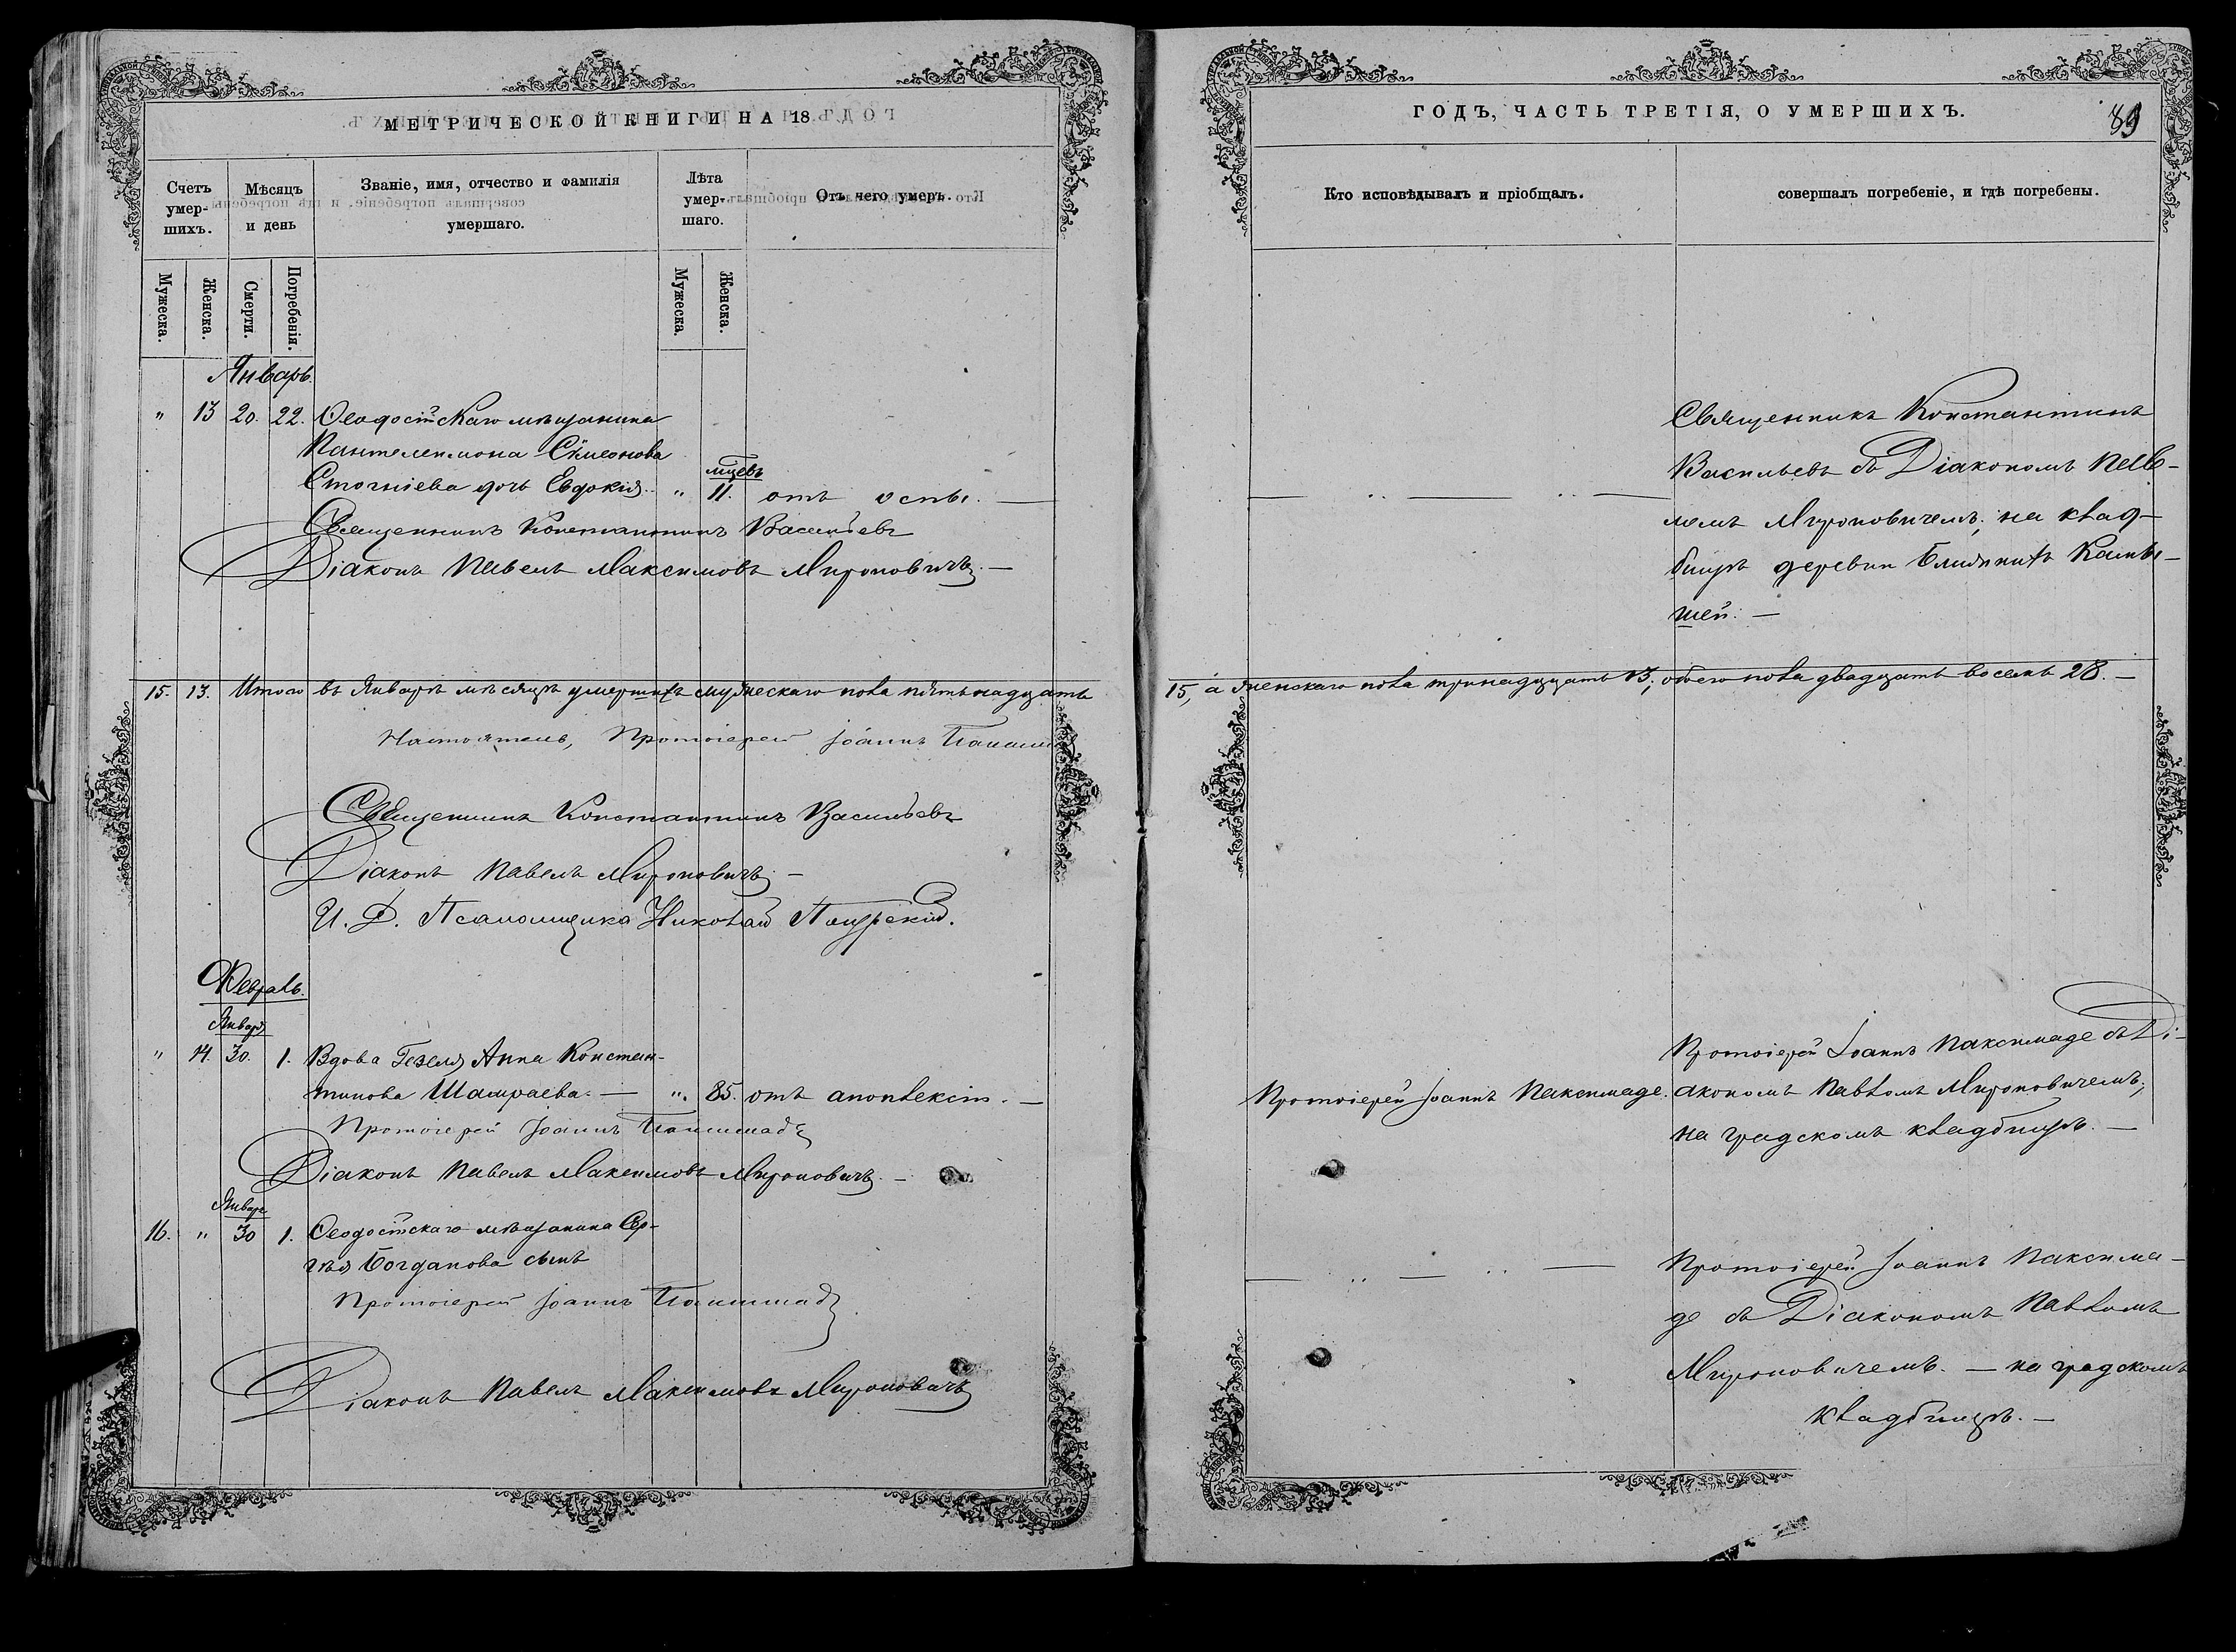 МЕТРИЧЕСКОЙ КНИГИ НА 18
Счетъ умер- шихъ.
Мѣсяцъ и день
Званіе, имя, отчество и фамилія умершаго.
Лѣта умер- шаго.
Отъ чего умеръ.
Мужеска.
Женска.
Смерти.
Погребенія.
Мужеска.
Женска.
Январь.
" 13 20. 22. Ѳеодосійскаго мѣщанина
Пантелеимона Сѵмеонова
мцевъ
дочь Евдокія. " 11. отъ оспы. —
Священникъ Константинъ Васильевъ
Діаконъ Павелъ Максимовъ Мироновичъ. —
15. 13. Итого въ Январѣ мѣсяцѣ умершихъ мужескаго пола пятьнадцать
Настоятель, Протоіерей Іоаннъ
Священникъ Константинъ Васильевъ
Діаконъ Павелъ Мироновичъ. —
И. Д. Псаломщика Николай
Февраль.
Января
" 14. 30. 1. Вдова Анна Констан-
тинова Шамраева. — ". 85. отъ апоплексіи. —
Протоіерей Іоаннъ
Діаконъ Павелъ Максимовъ Мироновичъ. —
Января
16. " 30 1. Ѳеодосійскаго мѣщанина Сер-
гѣя Богданова сынъ
Протоіерей Іоаннъ
Діаконъ Павелъ Максимовъ Мироновичъ
ГОДЪ, ЧАСТЬ ТРЕТІЯ, О УМЕРШИХЪ.
89
Кто исповѣдывалъ и пріобщалъ.
совершалъ погребеніе, и гдѣ погребены.
Священникъ Константинъ
Васильевъ съ Діакономъ Павло-
— " — " —
мъ Мироновичемъ; на клад-
бищѣ деревни Ближнихъ Камы-
шей. —
15, а женскаго пола тринадцать 13; обоего пола двадцать восемь 28. —
Протоіерей Іоаннъ Максимаде съ Ді-
Протоіерей Іоаннъ Максимаде. акономъ Павломъ Мироновичемъ;
на градскомъ кладбищѣ. —
— " — " — Протоіерей Іоаннъ Максима-
де съ Діакономъ Павломъ
Мироновичемъ. — на градскомъ
кладбищѣ. —